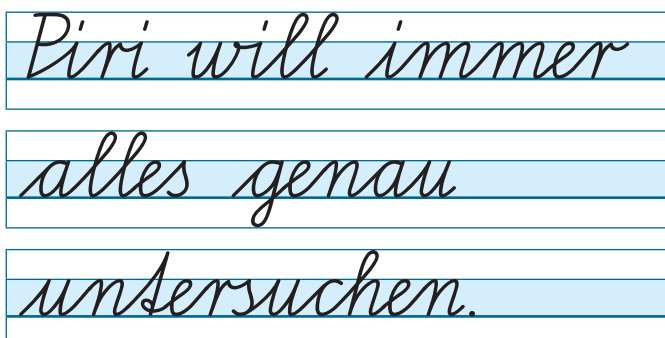 Piri will immer
alles genau
untersuchen.